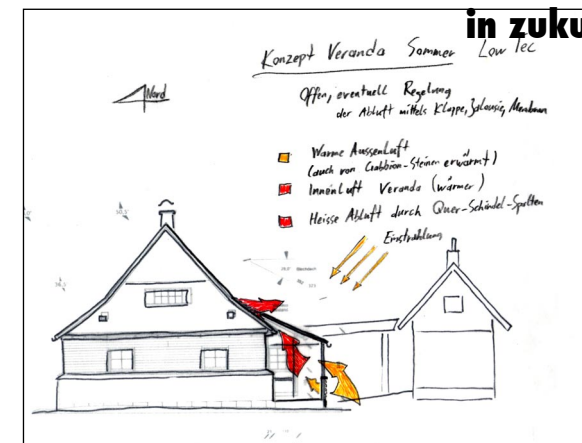 in zuku
Konzept Veranda Sommer Low Tec
Nord
Offen, eventuell Regelung
der Abluft mittels Klappe, Jalousie, Membran
Warme Aussenluft
(auch von Gabbion-Steinen erwärmt)
Innenluft Veranda (wärmer)
Heisse Abluft durch Quer-Schindel-Spalten
Einstrahlung